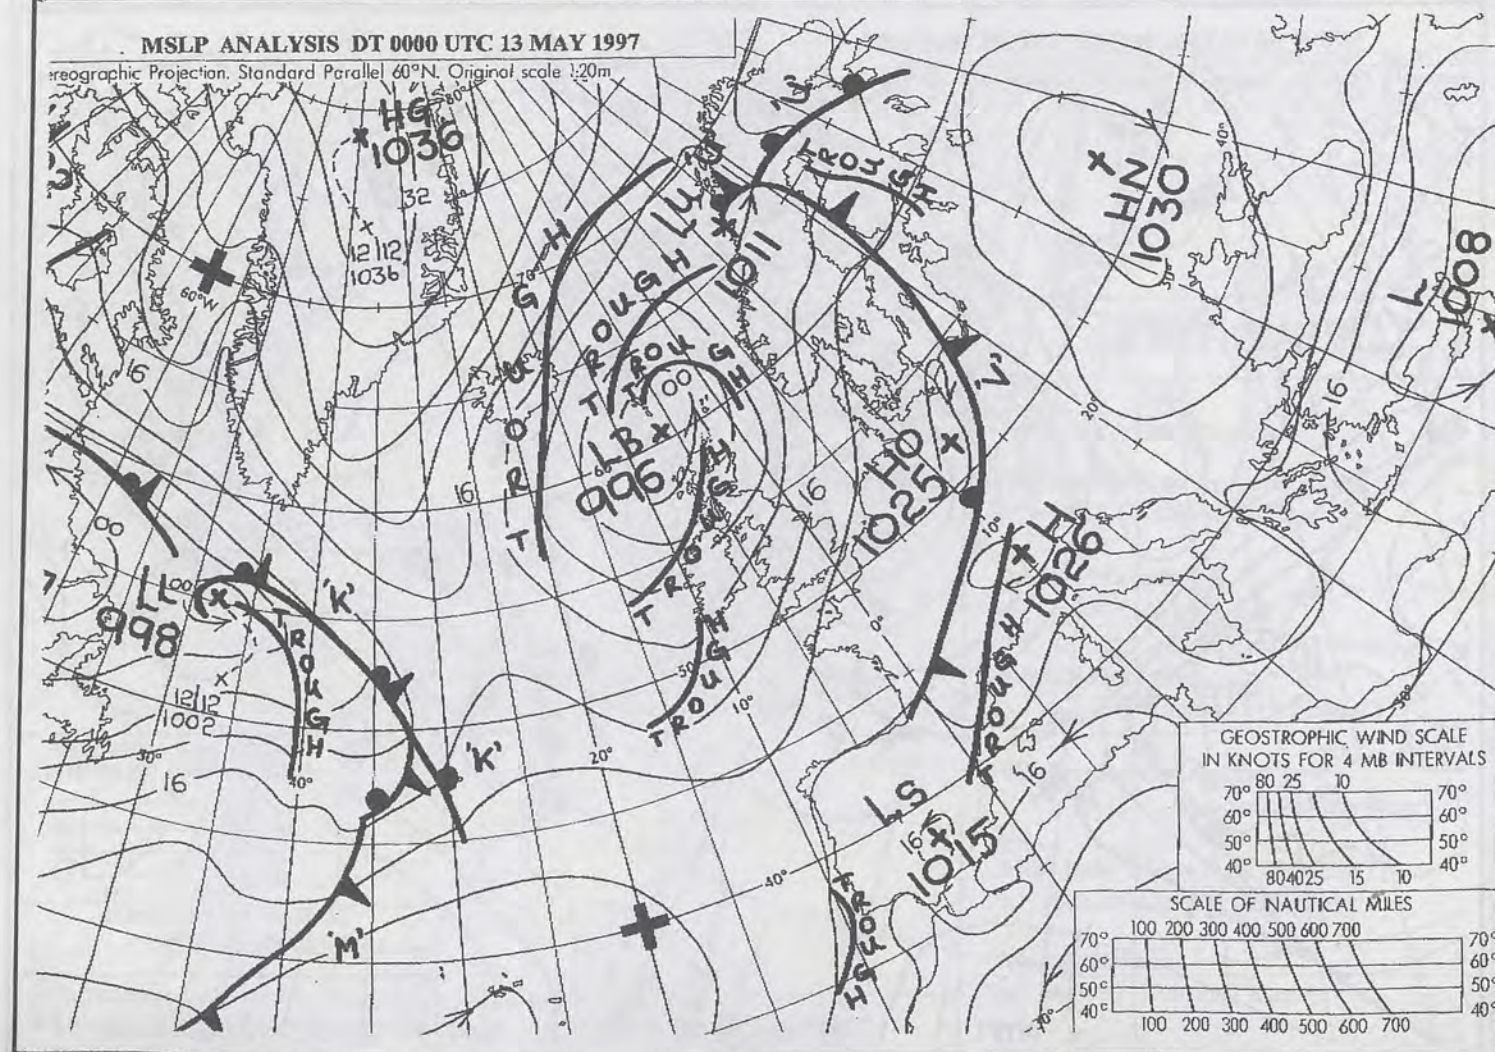 MSLP ANALYSIS DT 0000 UTC 13 MAY 1997
ereographic Projection. Standard Parallel 60°N. Original scale 1:20m
80°
HG
1036
32
12/12
1036
60°W
16
TROUGH
TROUGH
TROUGH
00
LB
996
60
70
LU
1011
'J'
TROUGH
'J'
HN
1030
40°
L
1008
16
20°
HO
1025
16
H
1026
10°
TROUGH
16
00
LL
998
00
TROUGH
'K'
12/12
1002
50°
40°
16
'K'
'M'
TROUGH
TROUGH
50
10°
20°
0°
LS
1015
16
40°
TROUGH
30°
GEOSTROPHIC WIND SCALE
IN KNOTS FOR 4 MB INTERVALS
80 25 10
70° 70°
60° 60°
50° 50°
40° 40°
80 40 25 15 10
SCALE OF NAUTICAL MILES
100 200 300 400 500 600 700
70° 70°
60° 60°
50° 50°
40° 40°
100 200 300 400 500 600 700